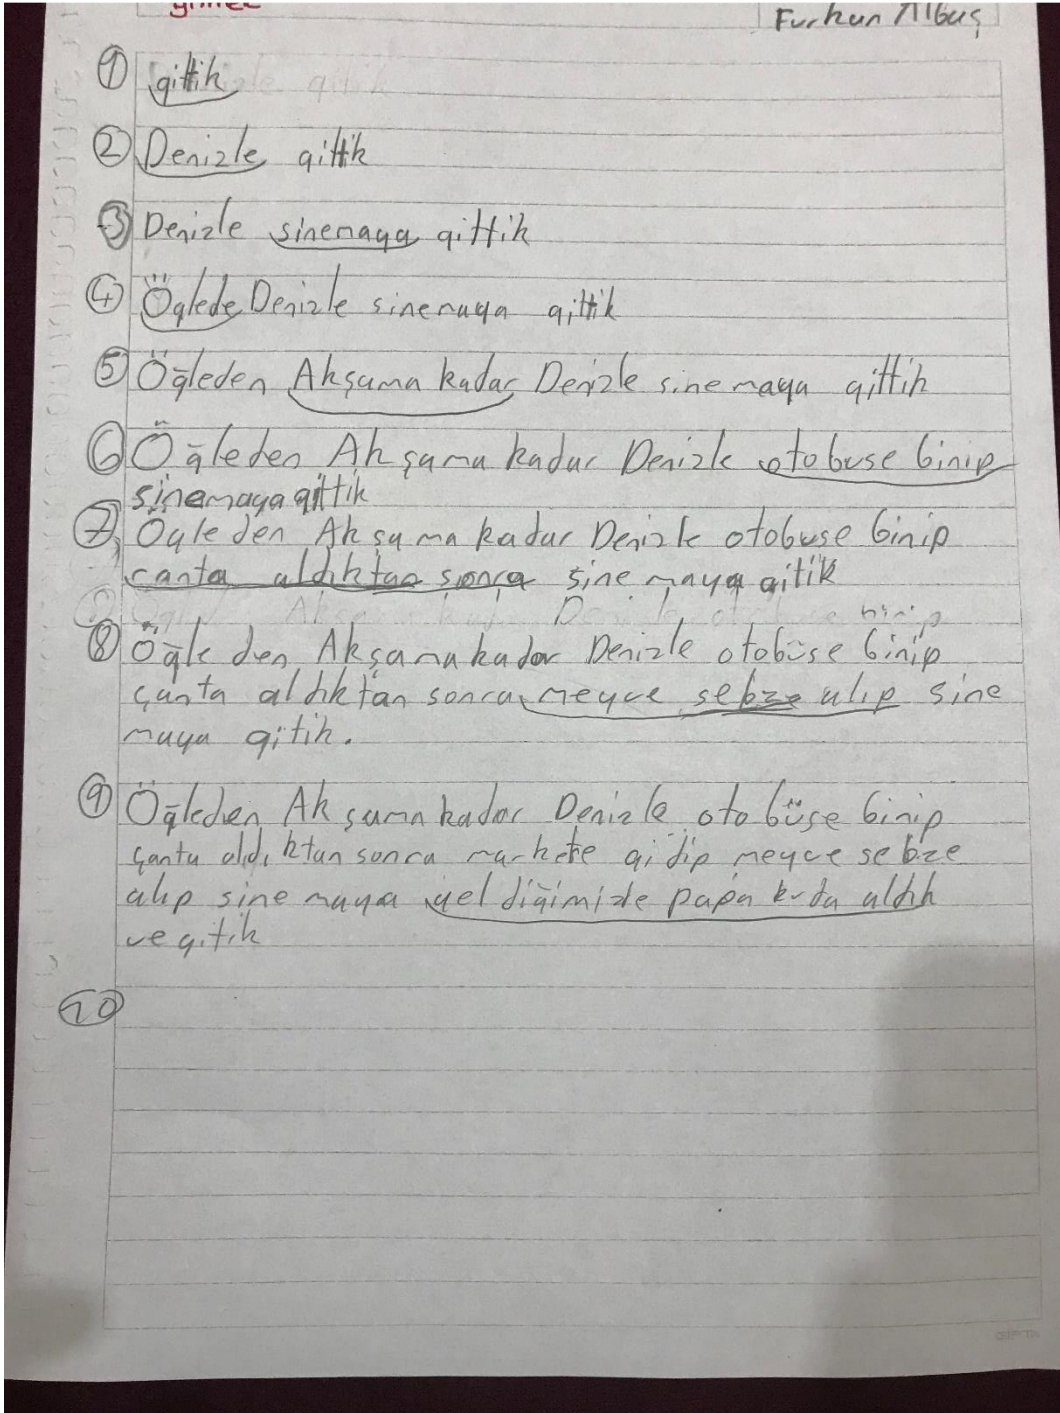 Furkan Albaş
1 gittik
2 Denizle gittik
3 Denizle sinemaya gittik
4 Öğlede Denizle sinemaya gittik
5 Öğleden Akşama kadar Denizle sinemaya gittik
6 Öğleden Akşama kadar Denizle otobuse binip
sinemaya gittik
7 Öğleden Akşama kadar Denizle otobuse binip
canta aldıktan sonra sinemaya gitik
8 Öğleden Akşama kadar Denizle otobüse binip
çanta aldıktan sonra meyve sebze alıp sine
maya gitik.
9 Öğleden Akşama kadar Denizle otobüse binip
çanta aldıktan sonra markete gidip meyve sebze
alıp sinemaya geldiğimizde aldık
ve gitik
10